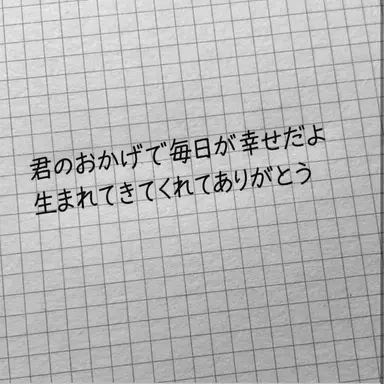 君のおかげで毎日が幸せだよ
生まれてきてくれてありがとう